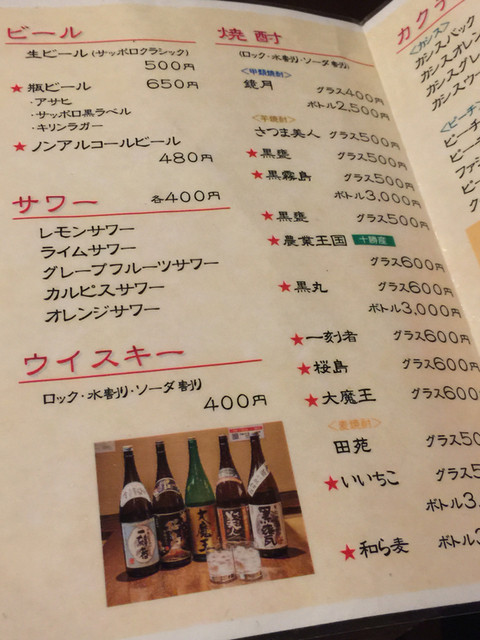 ビール
生ビール(サッポロクラシック)
500円
★瓶ビール 650円
・アサヒ
・サッポロ黒ラベル
・キリンラガー
★ノンアルコールビール
480円
サワー 各400円
レモンサワー
ライムサワー
グレープフルーツサワー
カルピスサワー
オレンジサワー
ウイスキー
ロック・水割り・ソーダ割り
400円
大魔王
焼酎
(ロック・水割り・ソーダ割り)
<甲類焼酎>
鏡月 グラス400円
ボトル2,500円
<芋焼酎>
さつま美人 グラス500円
★黒甕 グラス500円
★黒霧島 グラス500円
ボトル3,000円
★黒甕 グラス500円
★農業王国 十勝産
グラス600円
★黒丸 グラス600円
ボトル3,000円
★一刻者 グラス600円
★桜島 グラス600円
★大魔王 グラス600
<麦焼酎>
田苑 グラス50
★いいちこ グラス5
ボトル3,
★和ら麦 ボトル3
カクテ
<カシス>
カシスバック
カシスオレン
カシスグレ
カシスウー
<ピーチ
ピーチ
ピーチ
ファジ
ピー
ク